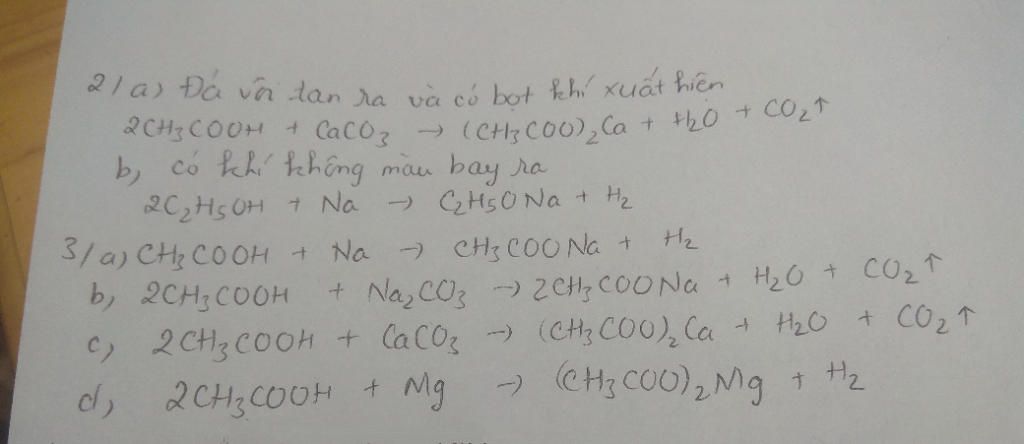 2/a) Đá vôi tan ra và có bọt khí xuất hiện
2CH₃COOH + CaCO₃ → (CH₃COO)₂Ca + H₂O + CO₂↑
b, có khí không màu bay ra
2C₂H₅OH + Na → C₂H₅ONa + H₂
3/a) CH₃COOH + Na → CH₃COONa + H₂
b, 2CH₃COOH + Na₂CO₃ → 2CH₃COONa + H₂O + CO₂↑
c, 2CH₃COOH + CaCO₃ → (CH₃COO)₂Ca + H₂O + CO₂↑
d, 2CH₃COOH + Mg → (CH₃COO)₂Mg + H₂